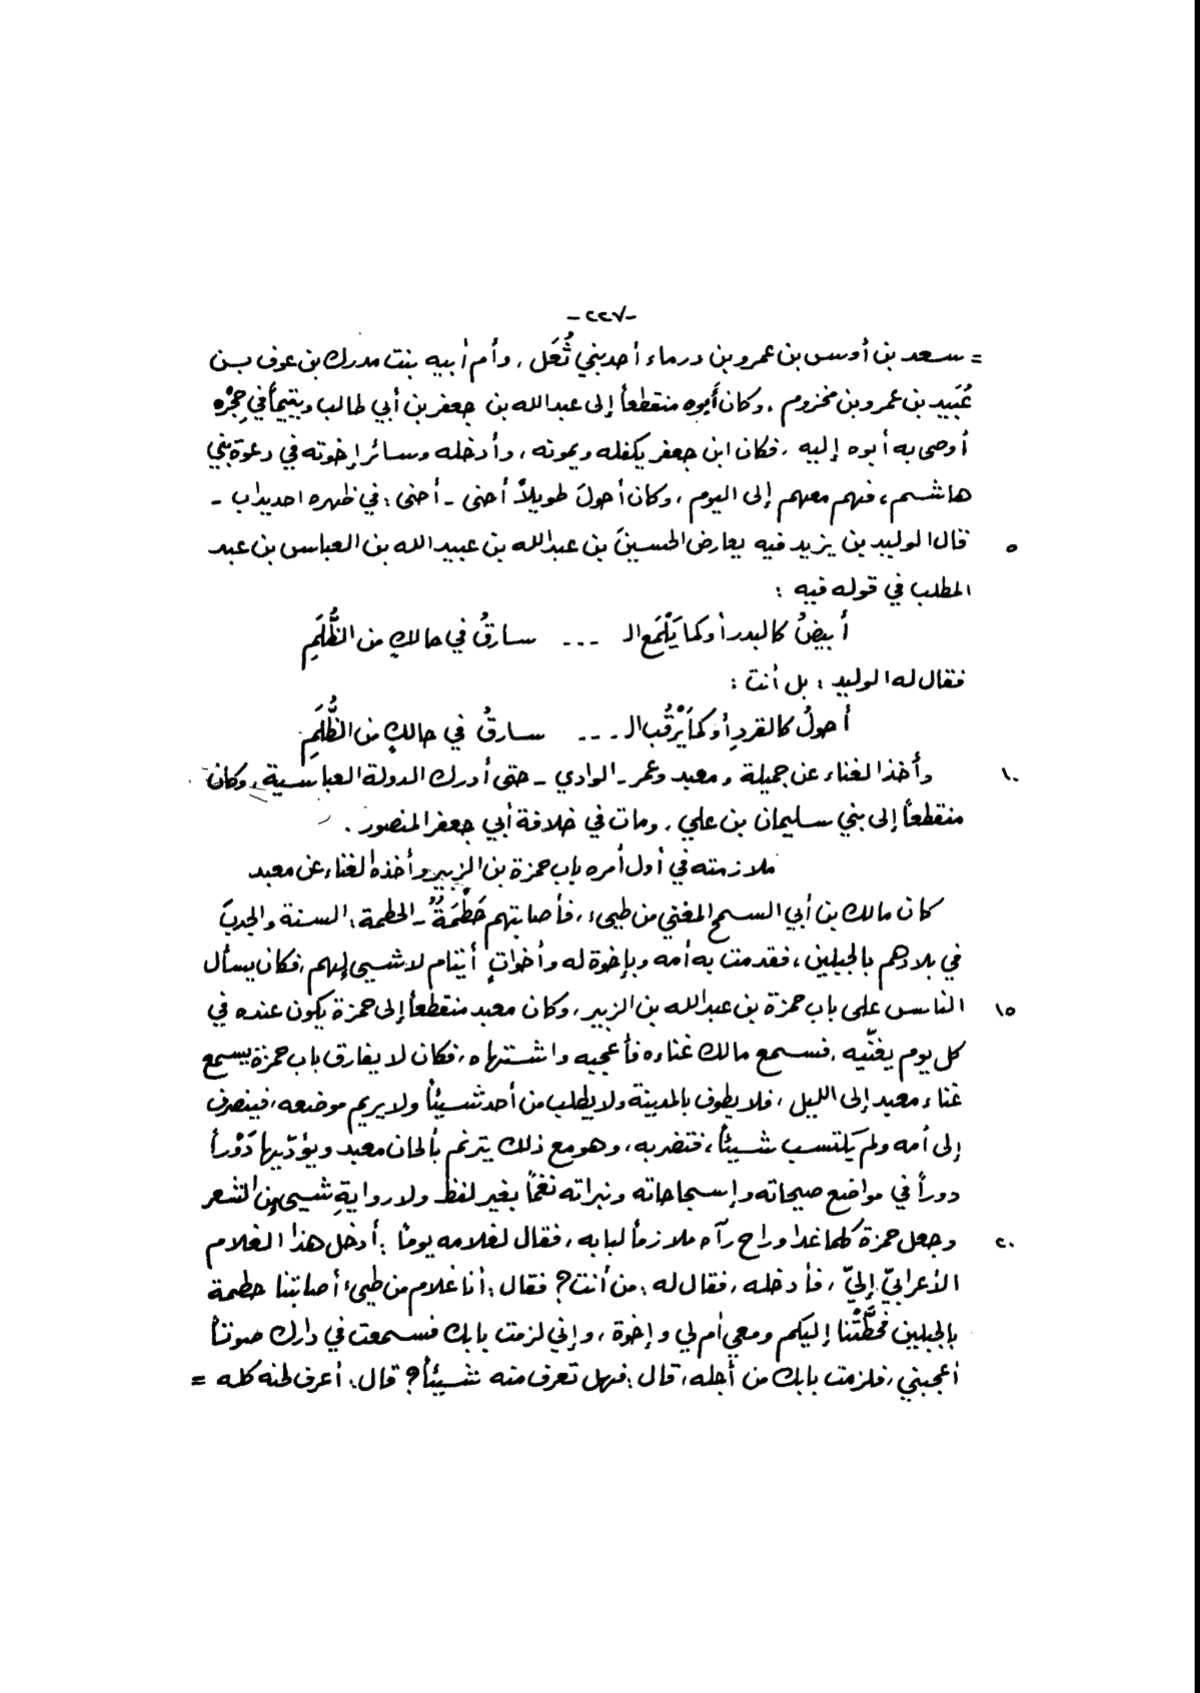 -٢٢٧-
= سعد بن أوس بن عمرو بن درماء أحد بني ثُعَل، وأم أبيه بنت مدرك بن عوف بن
عُبَيد بن عمرو بن مخزوم، وكان أبوه منقطعاً إلى عبد الله بن جعفر بن أبي طالب ويتيماً في حِجْره
أوصى به أبوه إليه، فكان ابن جعفر يكفله ويمونه، وأدخله وسائر إخوته في دعوة بني
هاشم، فهم معهم إلى اليوم، وكان أحولَ طويلاً أحنى - أحنى: في ظهره احديداب -
٥ قال الوليد بن يزيد فيه يعارض الحسينَ بن عبد الله بن عبيد الله بن العباس بن عبد
المطلب في قوله فيه:
أبيضُ كالبدر أو كما يَلْمَع الـ ... سارقُ في حالكٍ من الظُّلَمِ
فقال له الوليد: بل أنت:
أحولُ كالقردِ أو كما يَرْقُب الـ ... سارقُ في حالكٍ من الظُّلَمِ
١٠ وأخذ الغناء عن جميلة ومعبد وعمر - الوادي - حتى أدرك الدولة العباسية، وكان
منقطعاً إلى بني سليمان بن علي، ومات في خلافة أبي جعفر المنصور.
ملازمته في أول أمره باب حمزة بن الزبير وأخذه الغناء عن معبد
كان مالك بن أبي السمح المغني من طيىء، فأصابتهم حَطْمَةٌ - الحطمة: السنة والجدب
في بلادهم بالجبلين، فقدمت به أمه وبإخوة له وأخواتٍ أيتام لا شيء لهم، فكان يسأل
١٥ الناس على باب حمزة بن عبد الله بن الزبير، وكان معبد منقطعاً إلى حمزة يكون عنده في
كل يوم يغنّيه، فسمع مالك غناءه فأعجبه واشتهاه، فكان لا يفارق باب حمزة يسمع
غناء معبد إلى الليل، فلا يطوف بالمدينة ولا يطلب من أحد شيئاً ولا يريم موضعه، فينصرف
إلى أمه ولم يكتسب شيئاً، فتضربه، وهو مع ذلك يترنم بألحان معبد ويؤدّيها دَوْراً
دوراً في مواضع صيحاته وإسجاحاته ونبراته نغماً بغير لفظ ولا روايةِ شيءٍ من الشعر
٢٠ وجعل حمزة كلما غدا وراح رآه ملازماً لبابه، فقال لغلامه يوماً: أدخل هذا الغلام
الأعرابيّ إليّ، فأدخله، فقال له: من أنت؟ فقال: أنا غلام من طيىء أصابتنا حطمة
بالجبلين فحَطَّتْنا إليكم ومعي أم لي وإخوة، وإني لزمت بابك فسمعت في دارك صوتاً
أعجبني، فلزمت بابك من أجله، قال: فهل تعرف منه شيئاً؟ قال: أعرف لحنه كله =